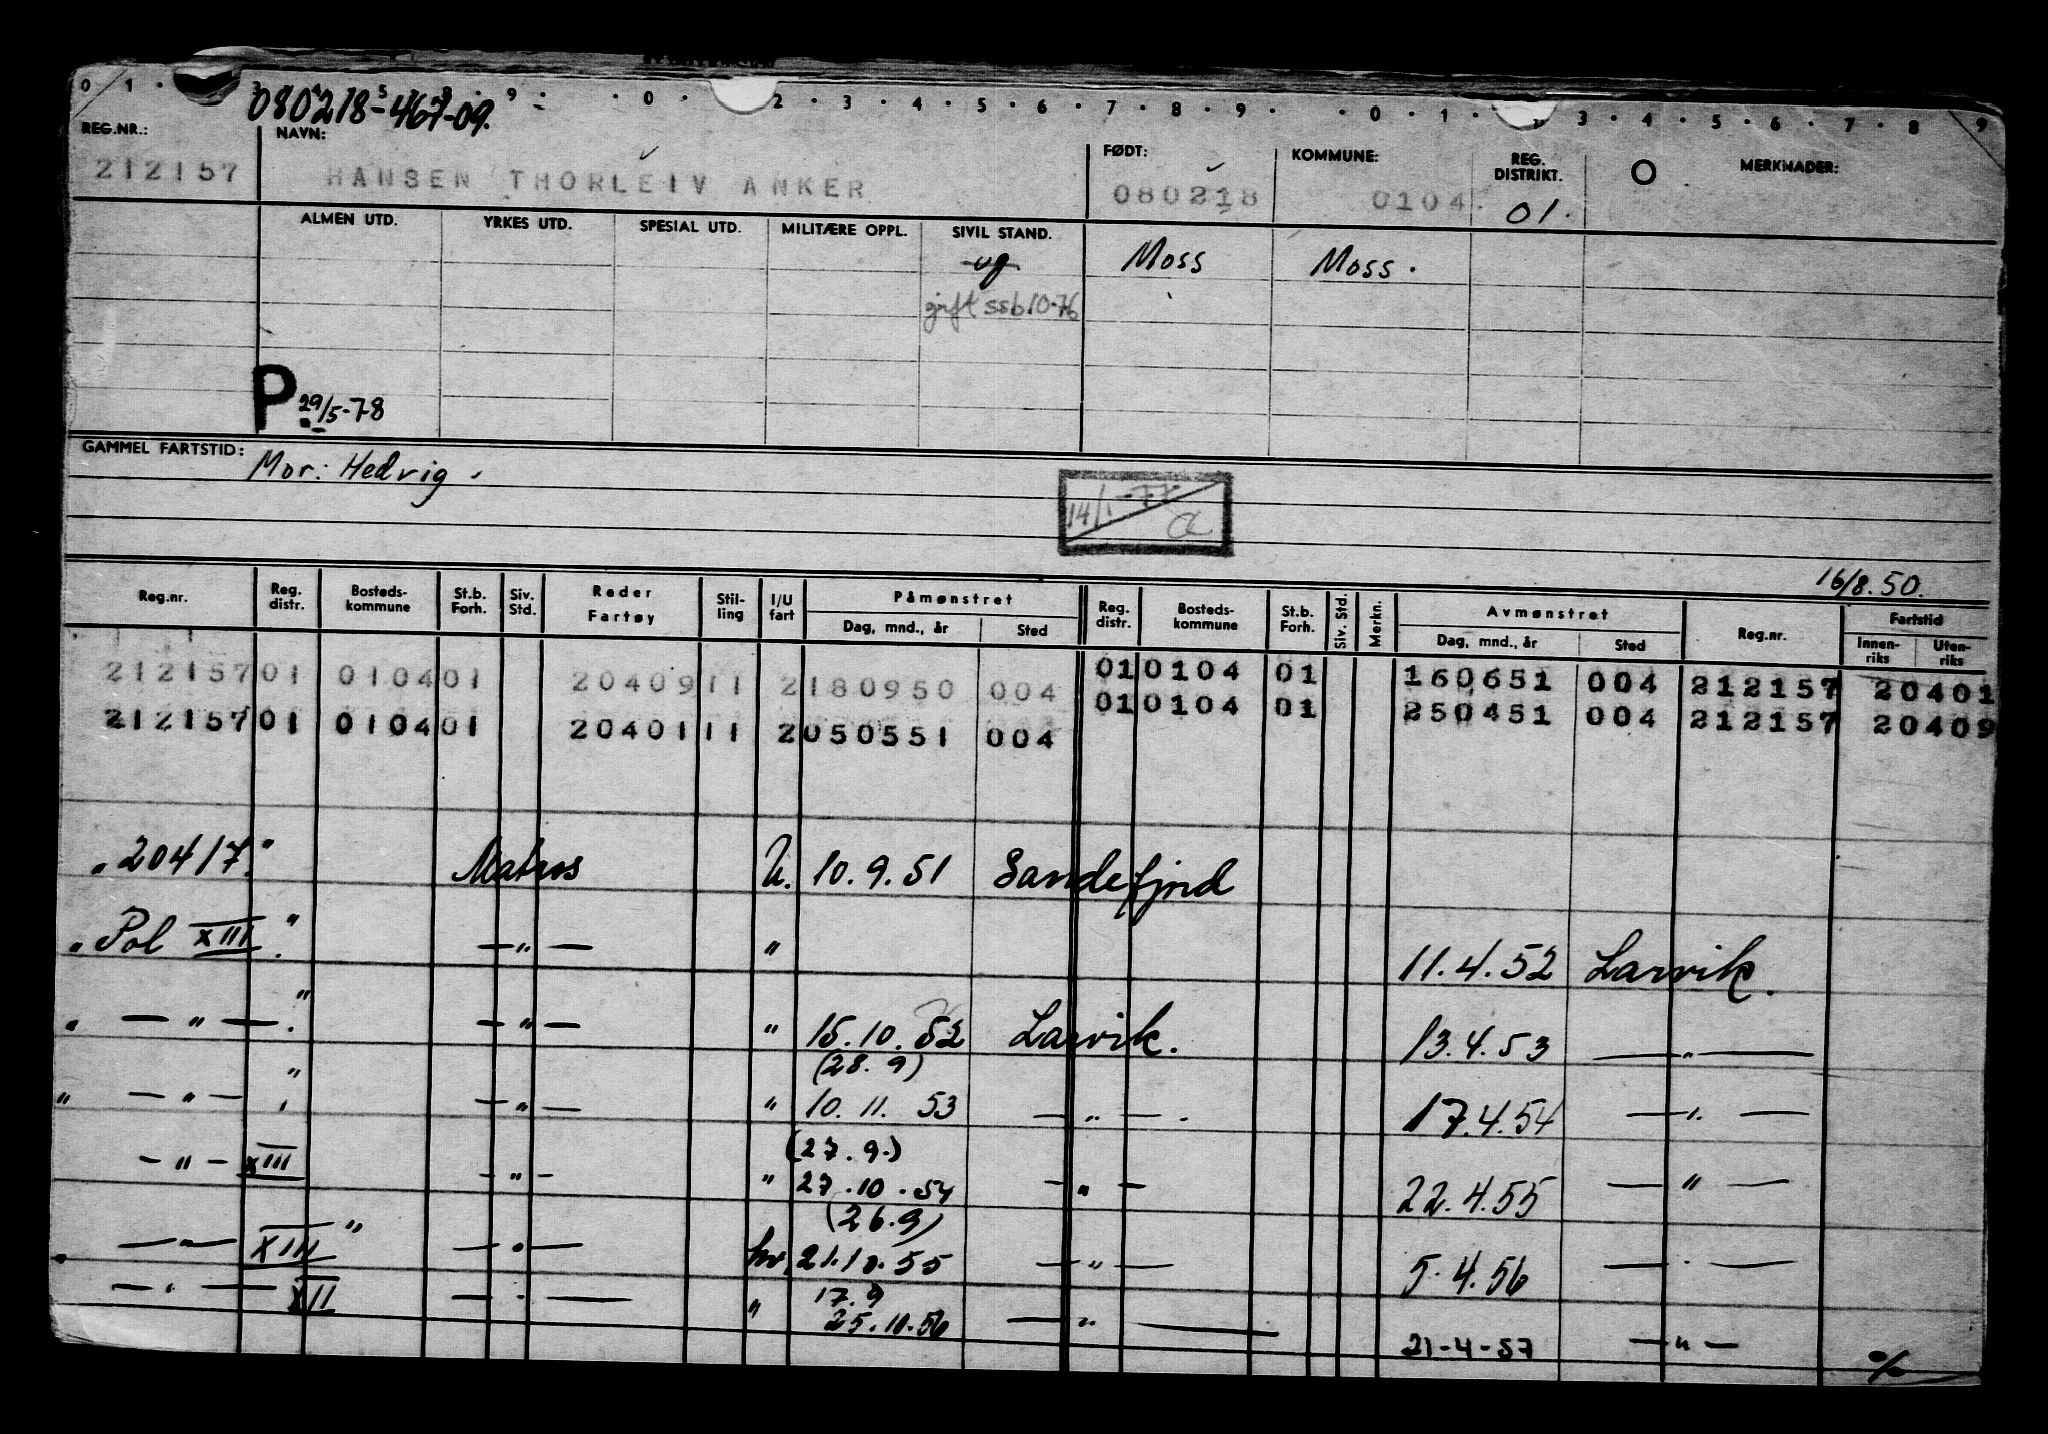 0 1 . 3 4 5 . 8 . 9 . . 0 . 2 . 3 . 4 . 5 . 6 . 7 . 8 . 9 . . 0 . 1 . 3 . 4 . 5 . 6 . 7 . 8 . 9
080218-467-09.
REG.NR.: NAVN: FØDT: KOMMUNE: REG. DISTRIKT. O MERKNADER:
212157 HANSEN THORLEIV ANKER 080218 0104. 01.
ALMEN UTD. YRKES UTD. SPESIAL UTD. MILITÆRE OPPL. SIVIL STAND.
ug Moss Moss.
gift ssb 10-76
P 29/5-78
GAMMEL FARTSTID: Mor: Hedvig.
14/1-77
16/8.50.
Reg.nr. Reg. distr. Bosteds-kommune St.b. Forh. Siv. Std. Reder Fartøy Stil-ling I/U fart Påmønstret Dag, mnd., år Sted Reg. distr. Bosteds-kommune St.b. Forh. Siv. Std. Merkn. Avmønstret Dag, mnd., år Sted Reg.nr. Fartstid Innen-riks Uten-riks
212157 01 0104 01 204091 1 2 180950 004 01 0104 01 160651 004 212157 20401
212157 01 0104 01 204011 1 2 050551 004 01 0104 01 250451 004 212157 20409
"20417." Matros U. 10.9.51 Sandefjord
"Pol XIII." — " — " 11.4.52 Larvik.
" — " — ." — " — " 15.10.52 Larvik. 13.4.53 — " —
(28.9)
" — " — " — " — " 10.11.53 — " — . 17.4.54 — " —
(27.9.)
— " — XIII — " — " 27.10.54 — " — 22.4.55 — " —
(26.9)
" — " — XIII " — " — hv. 21.10.55 — " — 5.4.56 — " —
17.9
— " — XII — " — " 25.10.56 — " — 21-4-57 — " —
%